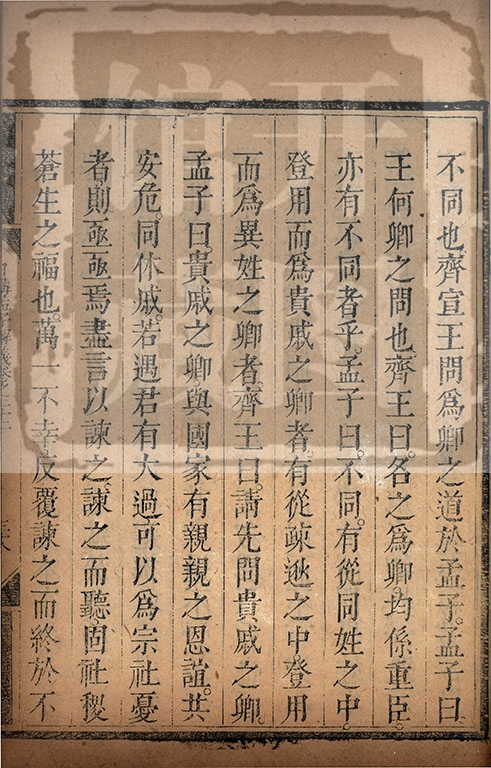 不同也齊宣王問爲卿之道於孟子。孟子曰
王何卿之問也齊王曰。名之爲卿。均係重臣。
亦有不同者乎。孟子曰。不同。有從同姓之中
登用而爲貴戚之卿者。有從疎逖之中登用
而爲異姓之卿者。齊王曰。請先問貴戚之卿。
孟子曰。貴戚之卿與國家有親親之恩誼。共
安危。同休戚。若遇君有大過可以爲宗社憂
者則亟亟焉盡言以諫之。諫之而聽。固社稷
蒼生之福也。萬一不幸反覆諫之而終於不